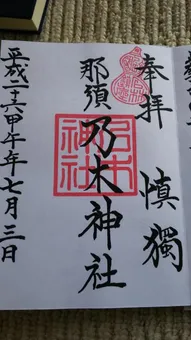 奉拝
慎獨
那須
乃木神社
平成二十六甲午年七月三日